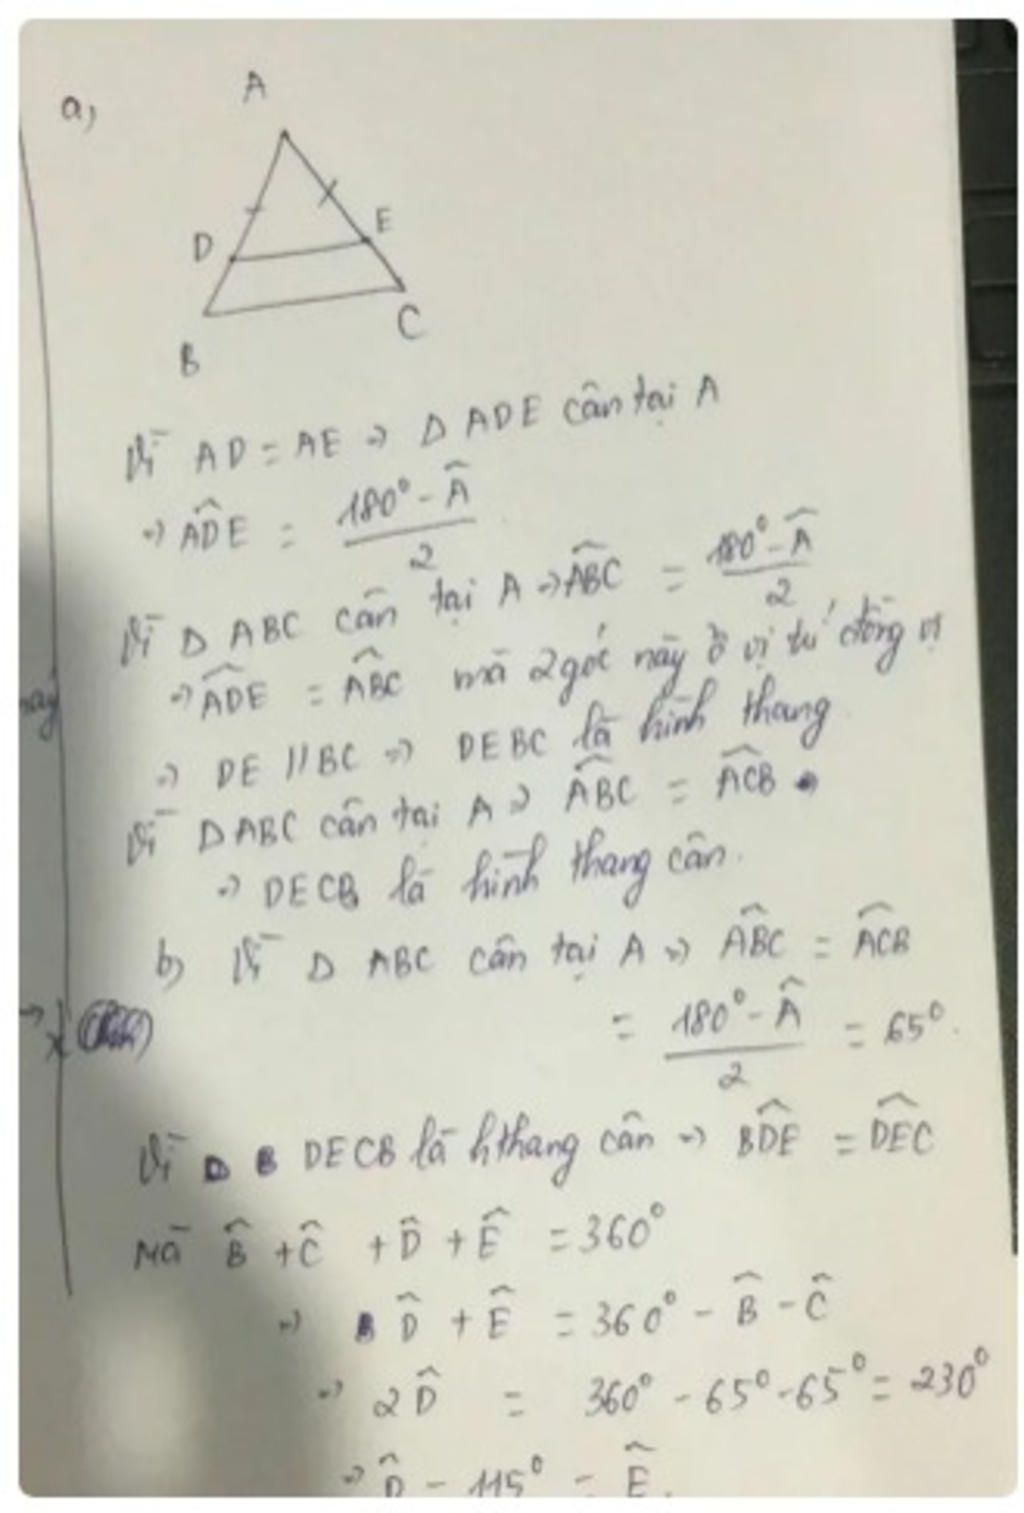 a)
A
D
E
B
C
Vì AD = AE => Δ ADE cân tại A
=> \widehat{ADE} = \frac{180° - \widehat{A}}{2}
Vì Δ ABC cân tại A => \widehat{ABC} = \frac{180° - \widehat{A}}{2}
=> \widehat{ADE} = \widehat{ABC} mà 2 góc này ở vị trí đồng vị
=> DE // BC => DEBC là hình thang
Vì Δ ABC cân tại A => \widehat{ABC} = \widehat{ACB}
=> DECB là hình thang cân.
b) Vì Δ ABC cân tại A => \widehat{ABC} = \widehat{ACB}
= \frac{180° - \widehat{A}}{2} = 65°.
Vì DECB là hthang cân => \widehat{BDE} = \widehat{DEC}
Mà \widehat{B} + \widehat{C} + \widehat{D} + \widehat{E} = 360°
=> \widehat{D} + \widehat{E} = 360° - \widehat{B} - \widehat{C}
=> 2\widehat{D} = 360° - 65° - 65° = 230°
=> \widehat{D} = 115° = \widehat{E}.